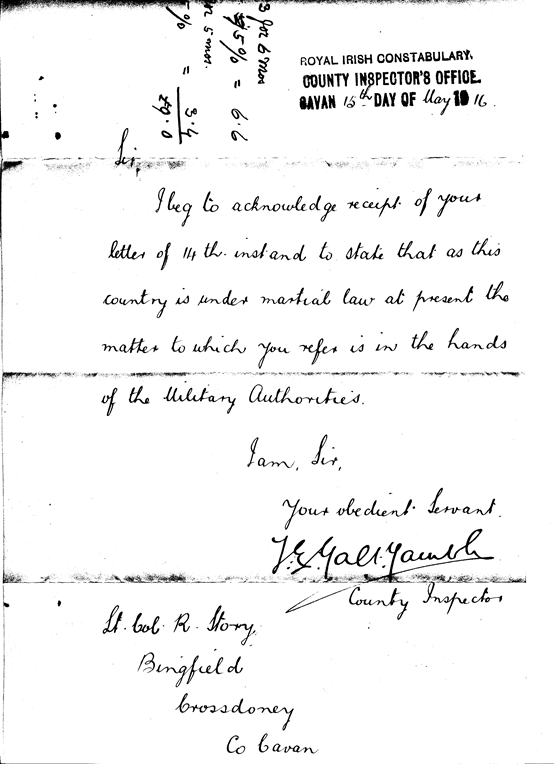 3 for 6 mos
5% = 6.6
5 mos.
5% = 3.4
ROYAL IRISH CONSTABULARY.
COUNTY INSPECTOR'S OFFICE.
CAVAN 15th DAY OF May 1916.
Sir,
I beg to acknowledge receipt of your
letter of 14th. inst and to state that as this
country is under martial law at present the
matter to which you refer is in the hands
of the Military Authorities.
I am, Sir,
Your obedient Servant.
County Inspector
Lt. Col. R. Story,
Bingfield
Crossdoney
Co Cavan